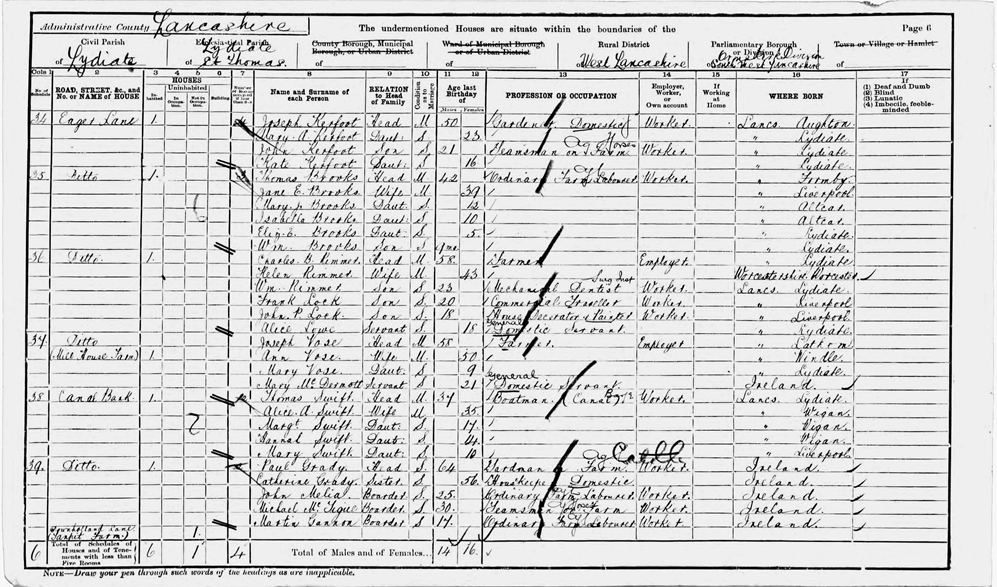 Administrative County Lancashire
The undermentioned Houses are situate within the boundaries of the
Page 6
Civil Parish
of Lydiate
Ecclesiastical Parish
of Lydiate St Thomas.
County Borough, Municipal Borough, or Urban District
of
Ward of Municipal Borough or of Urban District
of
Rural District
of West Lancashire
Parliamentary Borough or Division
of Ormskirk Division South West Lancashire
Town or Village or Hamlet
of
Cols 1 2 3 4 5 6 7 8 9 10 11 12 13 14 15 16 17
No. of Schedule
ROAD, STREET, &c., and No. or NAME of HOUSE
HOUSES
Inhabited
Uninhabited
In Occupation
Not in Occupation
Building
Name and Surname of each Person
RELATION to Head of Family
Condition as to Marriage
Age last Birthday of
Males
Females
PROFESSION OR OCCUPATION
Employer, Worker, or Own account
If Working at Home
WHERE BORN
If
(1) Deaf and Dumb
(2) Blind
(3) Lunatic
(4) Imbecile, feeble-minded
34 Eager Lane 1. Joseph Kerfoot Head M 50 Gardener Domestic Worker Lancs Aughton
Mary A. Kerfoot Daut S 23 " Lydiate
John Kerfoot Son S 21 Teamsman on Farm Worker " Lydiate
Kate Kerfoot Daut. S 16 " Lydiate
35 Ditto 1. 3 Thomas Brooks Head M 42 Ordinary Farm Labourer Worker " Formby
Jane E. Brooks Wife M 39 " Liverpool
Mary J. Brooks Daut S 12 " Altcar
Isabella Brooks Daut S. 10 " Altcar
Eliz. E. Brooks Daut S 5. " Lydiate
Wm. Brooks Son S 9 mo " Lydiate
36 Ditto 1. Charles B. Rimmer Head M 58. Farmer Employer " Lydiate
Helen Rimmer Wife M 43 Worcestershire Worcester
Wm. Rimmer Son S 23 Mechanical Dentist Surg Inst Worker Lancs Lydiate
Frank Lock Son S 20 Commercial Traveller Worker " Liverpool
John. P. Lock Son S. 18 House Decorator & Painter Worker " Liverpool
Alice Lowe Servant S 18 General Domestic Servant " Lydiate
37 Ditto Joseph Vose Head M 58 Farmer Employer " Lathom
(Mill House Farm) 1. Ann Vose Wife M 50 " Windle
Mary Vose Daut. S 9 " Lydiate
Mary McDermott Servant S 21 General Domestic Servant Ireland.
38 Canal Bank 1. Thomas Swift Head M 37 Boatman (Canal) Barge Worker Lancs Lydiate
Alice A. Swift Wife M 35. " Wigan
Margt. Swift Daut. S 17. " Wigan
Hannah Swift Daut. S 14. " Wigan
Mary Swift Daut. S 10 " Liverpool
39. Ditto 1. Paul Grady. Head S. 64 Yardman Farm Ag Cattle Worker Ireland.
Catherine Grady. Sister S. 56. Housekeeper Domestic Ireland.
John Melia. Boarder S. 25. Ordinary Farm Labourer Worker Ireland
Michael McTigue Boarder S. 30. Teamsman on Farm Worker Ireland.
Martin Gannon Boarder S 17. Ordinary Farm Labourer Worker Ireland.
Downholland Lane
(Tanpit Farm.) 1.
6 Total of Schedules of Houses and of Tenements with less than Five Rooms 6 1 4 Total of Males and of Females... 14 16.
NOTE—Draw your pen through such words of the headings as are inapplicable.